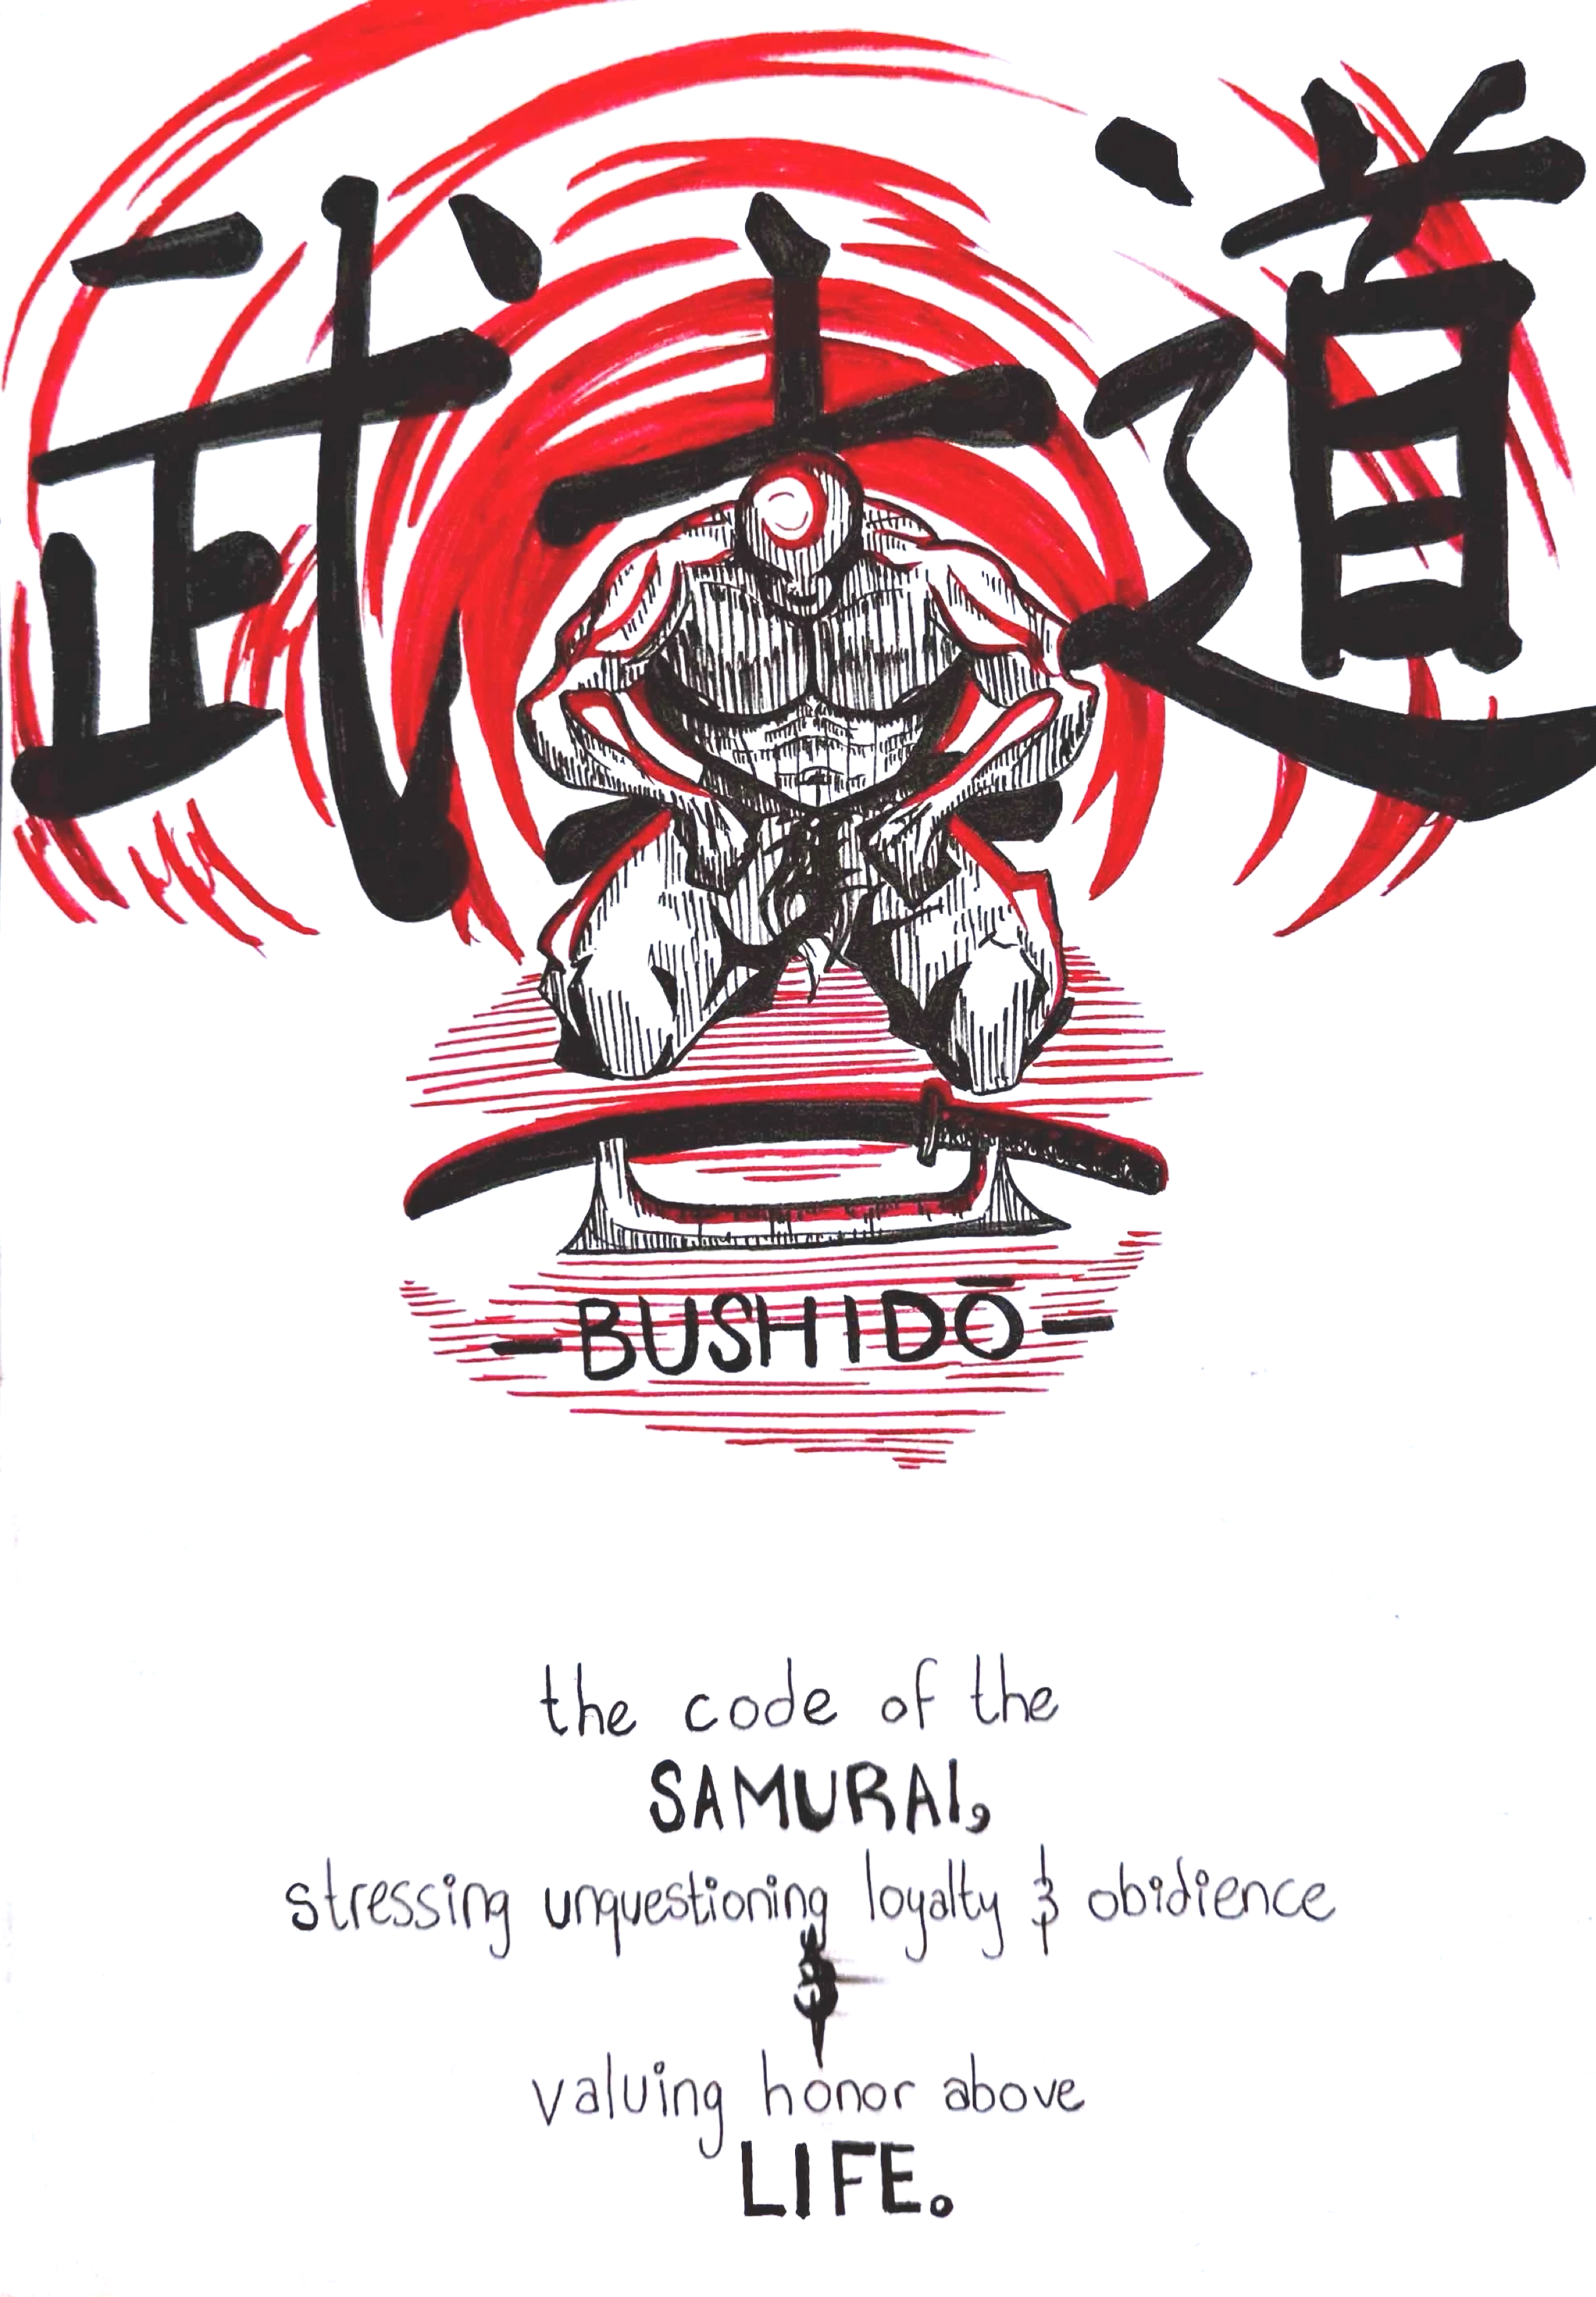 武士道
-BUSHIDŌ-
the code of the
SAMURAI,
stressing unquestioning loyalty & obidience
&
valuing honor above
LIFE.